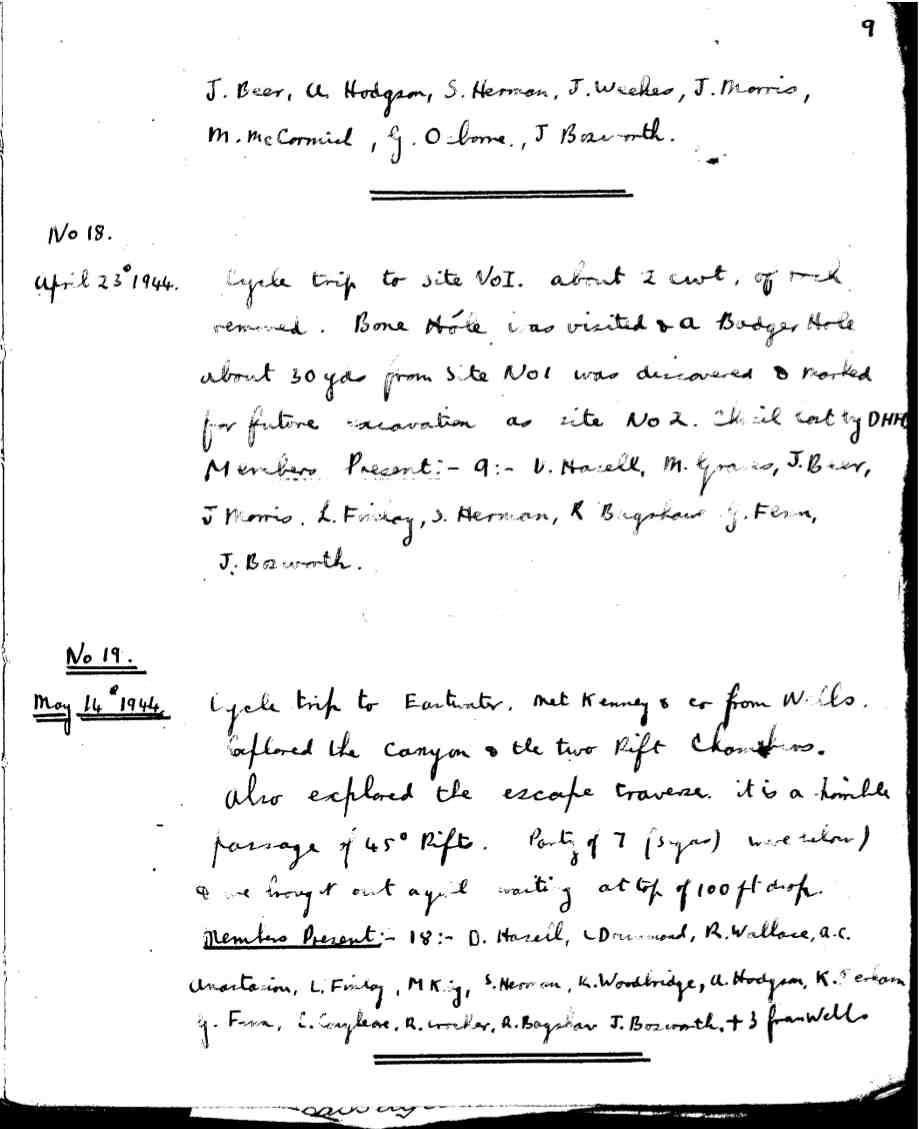 9
J. Beer, A. Hodgson, S. Herman, J. Weekes, J. Morris,
M. McCormick, G. Osborne., J Bosworth.
No 18.
April 23º 1944.
Cycle trip to site No I. about 2 cwt, of rock
removed. Bone Hole was visited & a Badger Hole
about 30 yds from Site No 1 was discovered & marked
for future excavation as site No 2. Chisil lost by DHH
Members Present:- 9:- D. Hasell, M. Graves, J. Beer,
J Morris. L. Finlay, S. Herman, R Bagshaw G. Fenn,
J. Bosworth.
No 19.
May 14º 1944
Cycle trip to Eastwater. Met Kenney & co from Wells.
Explored the Canyon & the two Rift Chambers.
Also explored the escape traverse. it is a horrible
passage of 45° Rifts. Party of 7 were below)
& we brought out a girl waiting at top of 100 ft drop.
Members Present:- 18:- D. Hasell, L Drummond, R. Wallace, A.C.
Anastasiou, L. Finlay, M King, S. Herman, K. Woodbridge, A. Hodgson, K.
G. Fenn, R. Crocker, R. Bagshaw J. Bosworth, + 3 from Wells